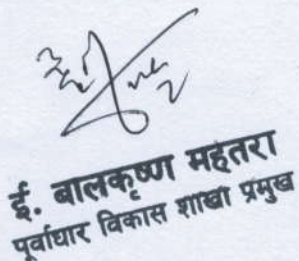 ई. बालकृष्ण महतरा
पूर्वाधार विकास शाखा प्रमुख